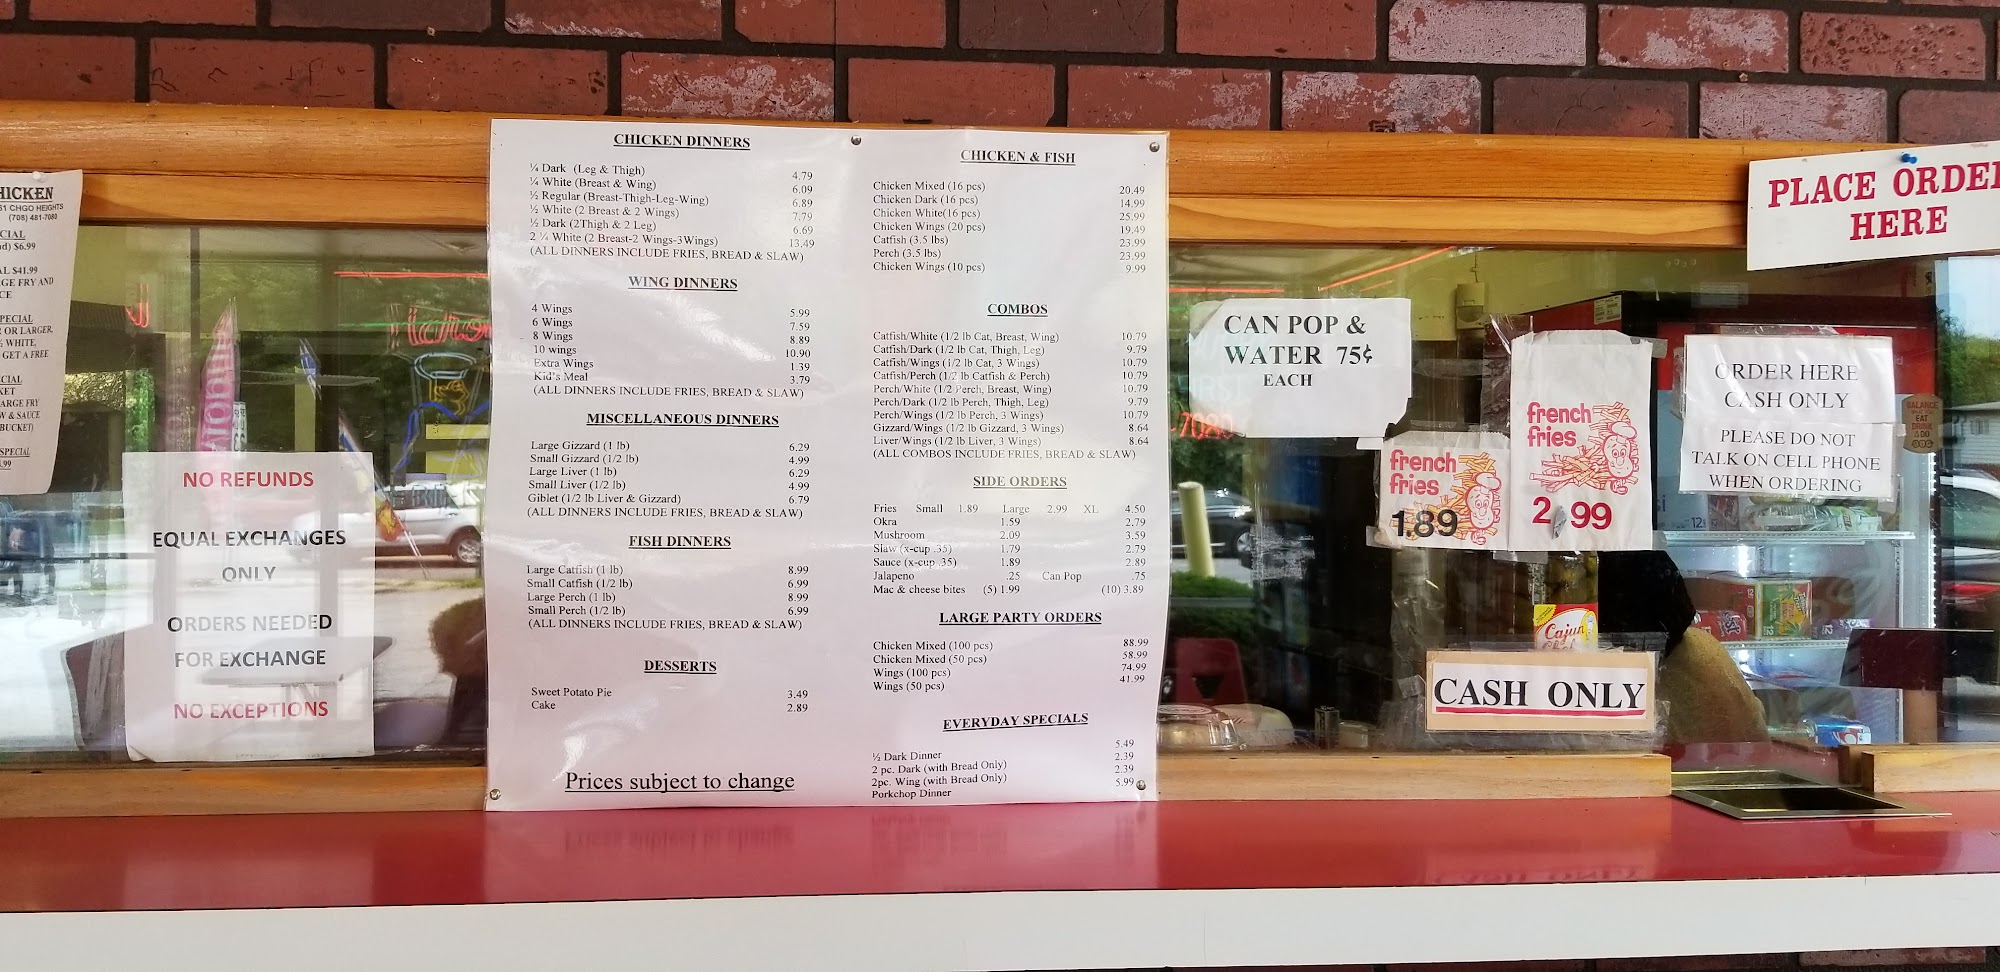 HICKEN
51 CHGO HEIGHTS
(708) 481-7080
CIAL
d) $6.99
AL $41.99
GE FRY AND
CE
PECIAL
R OR LARGER,
½ WHITE,
GET A FREE
CIAL
KET
ARGE FRY
W & SAUCE
BUCKET)
SPECIAL
.99
NO REFUNDS
EQUAL EXCHANGES
ONLY
ORDERS NEEDED
FOR EXCHANGE
NO EXCEPTIONS
CHICKEN DINNERS
¼ Dark (Leg & Thigh) 4.79
¼ White (Breast & Wing) 6.09
½ Regular (Breast-Thigh-Leg-Wing) 6.89
½ White (2 Breast & 2 Wings) 7.79
½ Dark (2Thigh & 2 Leg) 6.69
2 ¼ White (2 Breast-2 Wings-3Wings) 13.49
(ALL DINNERS INCLUDE FRIES, BREAD & SLAW)
WING DINNERS
4 Wings 5.99
6 Wings 7.59
8 Wings 8.89
10 wings 10.90
Extra Wings 1.39
Kid's Meal 3.79
(ALL DINNERS INCLUDE FRIES, BREAD & SLAW)
MISCELLANEOUS DINNERS
Large Gizzard (1 lb) 6.29
Small Gizzard (1/2 lb) 4.99
Large Liver (1 lb) 6.29
Small Liver (1/2 lb) 4.99
Giblet (1/2 lb Liver & Gizzard) 6.79
(ALL DINNERS INCLUDE FRIES, BREAD & SLAW)
FISH DINNERS
Large Catfish (1 lb) 8.99
Small Catfish (1/2 lb) 6.99
Large Perch (1 lb) 8.99
Small Perch (1/2 lb) 6.99
(ALL DINNERS INCLUDE FRIES, BREAD & SLAW)
DESSERTS
Sweet Potato Pie 3.49
Cake 2.89
Prices subject to change
CHICKEN & FISH
Chicken Mixed (16 pcs) 20.49
Chicken Dark (16 pcs) 14.99
Chicken White(16 pcs) 25.99
Chicken Wings (20 pcs) 19.49
Catfish (3.5 lbs) 23.99
Perch (3.5 lbs) 23.99
Chicken Wings (10 pcs) 9.99
COMBOS
Catfish/White (1/2 lb Cat, Breast, Wing) 10.79
Catfish/Dark (1/2 lb Cat, Thigh, Leg) 9.79
Catfish/Wings (1/2 lb Cat, 3 Wings) 10.79
Catfish/Perch (1/2 lb Catfish & Perch) 10.79
Perch/White (1/2 Perch, Breast, Wing) 10.79
Perch/Dark (1/2 lb Perch, Thigh, Leg) 9.79
Perch/Wings (1/2 lb Perch, 3 Wings) 10.79
Gizzard/Wings (1/2 lb Gizzard, 3 Wings) 8.64
Liver/Wings (1/2 lb Liver, 3 Wings) 8.64
(ALL COMBOS INCLUDE FRIES, BREAD & SLAW)
SIDE ORDERS
Fries Small 1.89 Large 2.99 XL 4.50
Okra 1.59 2.79
Mushroom 2.09 3.59
Slaw (x-cup .35) 1.79 2.79
Sauce (x-cup .35) 1.89 2.89
Jalapeno .25 Can Pop .75
Mac & cheese bites (5) 1.99 (10) 3.89
LARGE PARTY ORDERS
Chicken Mixed (100 pcs) 88.99
Chicken Mixed (50 pcs) 58.99
Wings (100 pcs) 74.99
Wings (50 pcs) 41.99
EVERYDAY SPECIALS
½ Dark Dinner 5.49
2 pc. Dark (with Bread Only) 2.39
2pc. Wing (with Bread Only) 2.39
Porkchop Dinner 5.99
CAN POP &
WATER 75¢
EACH
-7080
french
fries
1.89
french
fries
2.99
Cajun
CASH ONLY
ORDER HERE
CASH ONLY
PLEASE DO NOT
TALK ON CELL PHONE
WHEN ORDERING
PLACE ORDER
HERE
BALANCE
EAT
DRINK
& DO